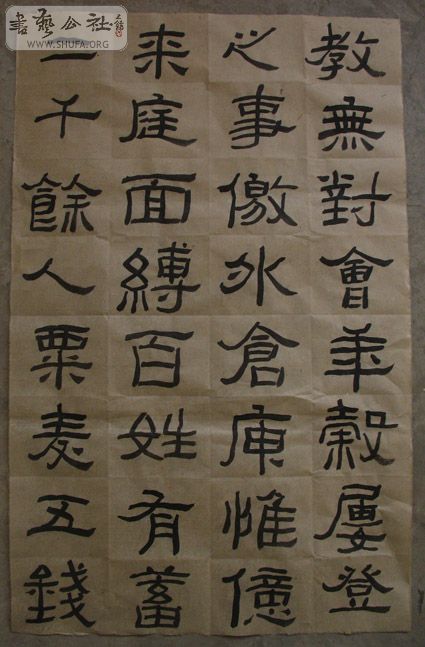 教無對會年穀屢登
之事徼外倉庾惟億
来庭面縛百姓有蓄
二千餘人粟麦五錢
書藝公社
WWW.SHUFA.ORG